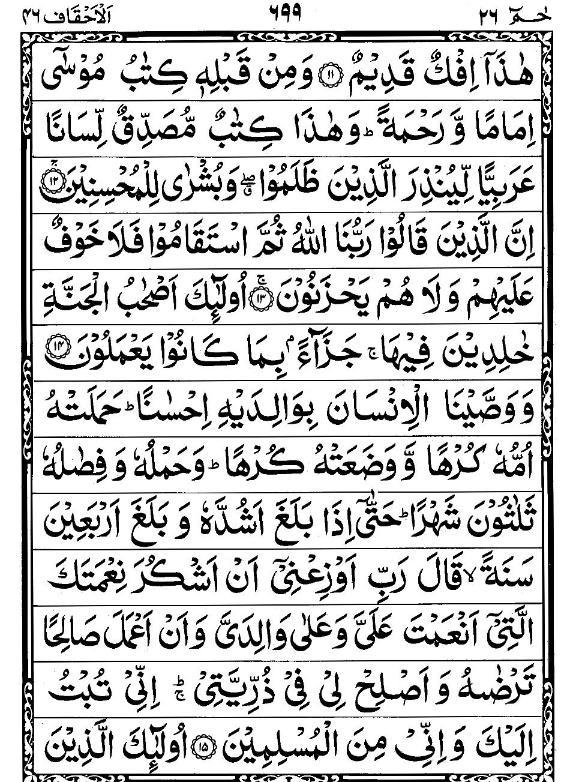 حٰمٓ ٢٦ ٦٩٩ اَلْاَحْقَاف ٤٦
هٰذَاۤ اِفْكٌ قَدِيْمٌ ۝١١ وَمِنْ قَبْلِهٖ كِتٰبُ مُوْسٰۤى
اِمَامًا وَّ رَحْمَةً ؕ وَهٰذَا كِتٰبٌ مُّصَدِّقٌ لِّسَانًا
عَرَبِيًّا لِّيُنْذِرَ الَّذِيْنَ ظَلَمُوْا ۖۗ وَبُشْرٰى لِلْمُحْسِنِيْنَ ۝١٢ۚ
اِنَّ الَّذِيْنَ قَالُوْا رَبُّنَا اللّٰهُ ثُمَّ اسْتَقَامُوْا فَلَا خَوْفٌ
عَلَيْهِمْ وَلَا هُمْ يَحْزَنُوْنَ ۝١٣ۚ اُولٰٓئِكَ اَصْحٰبُ الْجَنَّةِ
خٰلِدِيْنَ فِيْهَا ۚ جَزَآءًۢ بِمَا كَانُوْا يَعْمَلُوْنَ ۝١٤
وَوَصَّيْنَا الْاِنْسَانَ بِوَالِدَيْهِ اِحْسٰنًا ؕ حَمَلَتْهُ
اُمُّهٗ كُرْهًا وَّ وَضَعَتْهُ كُرْهًا ؕ وَحَمْلُهٗ وَ فِصٰلُهٗ
ثَلٰثُوْنَ شَهْرًا ؕ حَتّٰۤى اِذَا بَلَغَ اَشُدَّهٗ وَ بَلَغَ اَرْبَعِيْنَ
سَنَةً ۙ قَالَ رَبِّ اَوْزِعْنِيْۤ اَنْ اَشْكُرَ نِعْمَتَكَ
الَّتِيْۤ اَنْعَمْتَ عَلَيَّ وَعَلٰى وَالِدَيَّ وَاَنْ اَعْمَلَ صَالِحًا
تَرْضٰىهُ وَ اَصْلِحْ لِيْ فِيْ ذُرِّيَّتِيْ ؕۚ اِنِّيْ تُبْتُ
اِلَيْكَ وَ اِنِّيْ مِنَ الْمُسْلِمِيْنَ ۝١٥ اُولٰٓئِكَ الَّذِيْنَ